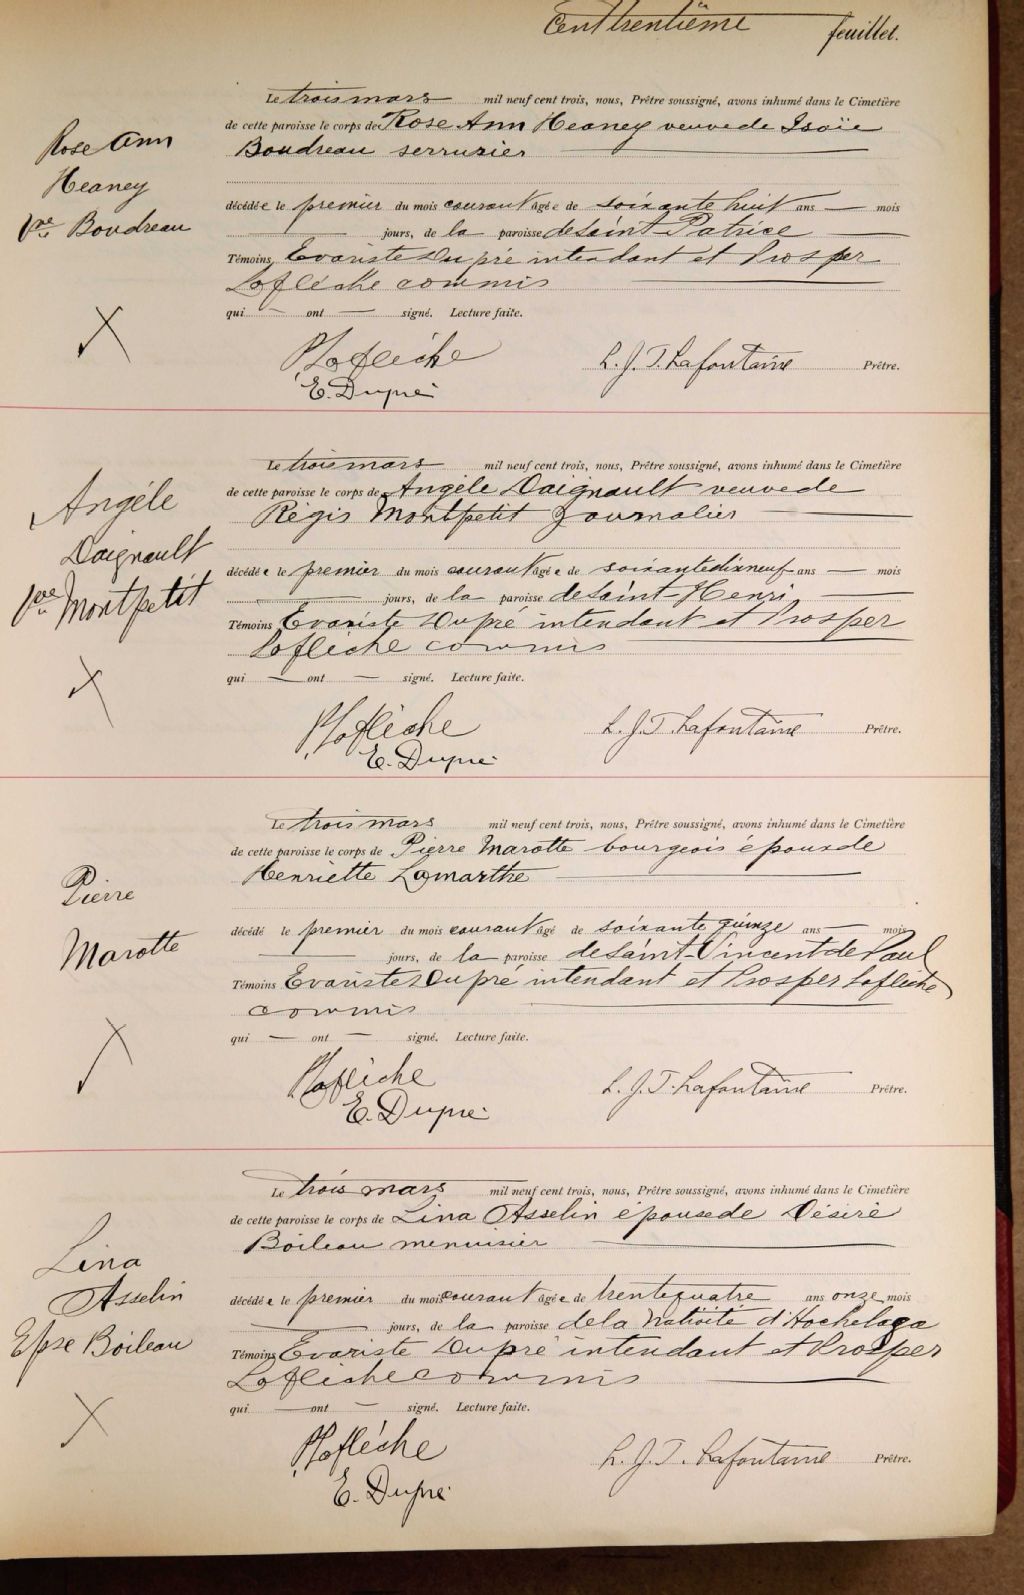 Cent trentième feuillet.
Le trois mars mil neuf cent trois, nous, Prêtre soussigné, avons inhumé dans le Cimetière
de cette paroisse le corps de Rose Ann Heaney veuve de Isaïe
Boudreau serrurier
Rose Ann
Heaney
Vve Boudreau
décédée le premier du mois courant âgée de soixante huit ans — mois
jours, de la paroisse de Saint Patrice
Témoins Evariste Dupré intendant et Prosper
Lafléche commis
qui — ont — signé. Lecture faite.
P Lafléche
E. Dupré
L. J. T. Lafontaine Prêtre.
Le trois mars mil neuf cent trois, nous, Prêtre soussigné, avons inhumé dans le Cimetière
de cette paroisse le corps de Angéle Daignault veuve de
Régis Montpetit journalier
Angéle
Daignault
Vve Montpetit
décédée le premier du mois courant âgée de soixante dix neuf ans — mois
jours, de la paroisse de Saint Henri
Témoins Evariste Dupré intendant et Prosper
Lafléche commis
qui — ont — signé. Lecture faite.
P Lafléche
E. Dupré
L. J. T. Lafontaine Prêtre.
Le trois mars mil neuf cent trois, nous, Prêtre soussigné, avons inhumé dans le Cimetière
de cette paroisse le corps de Pierre Marotte bourgeois époux de
Henriette Lamarthe
Pierre
Marotte
décédé le premier du mois courant âgé de soixante quinze ans — mois
jours, de la paroisse de Saint-Vincent de Paul
Témoins Evariste Dupré intendant et Prosper Lafléche
commis
qui — ont — signé. Lecture faite.
P Lafléche
E. Dupré
L. J. T. Lafontaine Prêtre.
Le trois mars mil neuf cent trois, nous, Prêtre soussigné, avons inhumé dans le Cimetière
de cette paroisse le corps de Lina Asselin épouse de Désiré
Boileau menuisier
Lina
Asselin
Epse Boileau
décédée le premier du mois courant âgée de trente quatre ans onze mois
jours, de la paroisse de la Nativité d'Hochelaga
Témoins Evariste Dupré intendant et Prosper
Lafléche commis
qui — ont — signé. Lecture faite.
P Lafléche
E. Dupré
L. J. T. Lafontaine Prêtre.